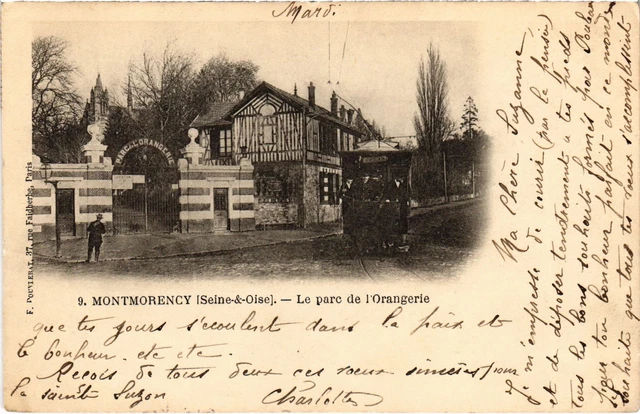 Mardi
PARC DE L'ORANGERIE
F. POUVLERAT, 37, rue Faidherbe, Paris
9. MONTMORENCY [Seine-&-Oise]. — Le parc de l'Orangerie
Ma Chère Suzanne
Je m'empresse de courir (par la pensée)
et de déposer tendrement à tes pieds
tous les bons souhaits formés par
pour ton bonheur parfait en ce monde
Je souhaite que tous tes voeux s'accomplissent
que tes jours s'écoulent dans la paix et
le bonheur. etc etc.
Reçois de tous deux ces voeux sincères pour
la sainte Suzon Charlotte